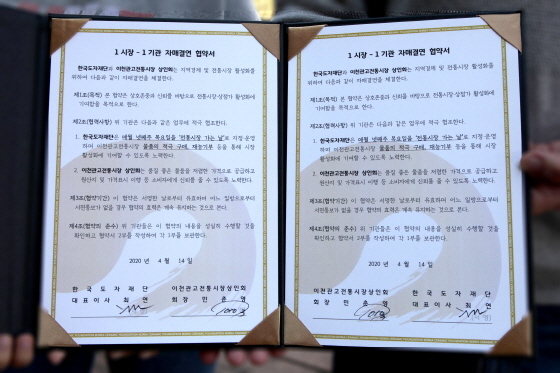 1 시장 - 1 기관 자매결연 협약서
한국도자재단과 이천관고전통시장 상인회는 지역경제 및 전통시장 활성화를
위하여 다음과 같이 자매결연을 체결한다.
제1조(목적) 본 협약은 상호존중과 신뢰를 바탕으로 전통시장·상점가 활성화에
기여함을 목적으로 한다.
제2조(협력사항) 위 기관은 다음과 같은 업무에 적극 협조한다.
1. 한국도자재단은 매월 넷째주 목요일을 "전통시장 가는 날"로 지정·운영
하며 이천관고전통시장 물품의 적극 구매, 재능기부 등을 통해 시장
활성화에 기여할 수 있도록 노력한다.
2. 이천관고전통시장 상인회는 품질 좋은 물품을 저렴한 가격으로 공급하고
원산지 및 가격표시 이행 등 소비자에게 신뢰를 줄 수 있도록 노력한다.
제3조(협약기간) 이 협약은 서명한 날로부터 유효하며 어느 일방으로부터
서면통보가 없을 경우 협약의 효력은 계속 유지하는 것으로 본다.
제4조(협약의 준수) 위 기관들은 이 협약의 내용을 성실히 수행할 것을
확인하고 협약서 2부를 작성하여 각 1부를 보관한다.
2020 년 4 월 14 일
한 국 도 자 재 단
대표이사 최 연
이천관고전통시장상인회
회 장 민 춘 영
1 시장 - 1 기관 자매결연 협약서
한국도자재단과 이천관고전통시장 상인회는 지역경제 및 전통시장 활성화를
위하여 다음과 같이 자매결연을 체결한다.
제1조(목적) 본 협약은 상호존중과 신뢰를 바탕으로 전통시장·상점가 활성화에
기여함을 목적으로 한다.
제2조(협력사항) 위 기관은 다음과 같은 업무에 적극 협조한다.
1. 한국도자재단은 매월 넷째주 목요일을 "전통시장 가는 날"로 지정·운영
하며 이천관고전통시장 물품의 적극 구매, 재능기부 등을 통해 시장
활성화에 기여할 수 있도록 노력한다.
2. 이천관고전통시장 상인회는 품질 좋은 물품을 저렴한 가격으로 공급하고
원산지 및 가격표시 이행 등 소비자에게 신뢰를 줄 수 있도록 노력한다.
제3조(협약기간) 이 협약은 서명한 날로부터 유효하며 어느 일방으로부터
서면통보가 없을 경우 협약의 효력은 계속 유지하는 것으로 본다.
제4조(협약의 준수) 위 기관들은 이 협약의 내용을 성실히 수행할 것을
확인하고 협약서 2부를 작성하여 각 1부를 보관한다.
2020 년 4 월 14 일
이천관고전통시장상인회
회 장 민 춘 영
한 국 도 자 재 단
대표이사 최 연